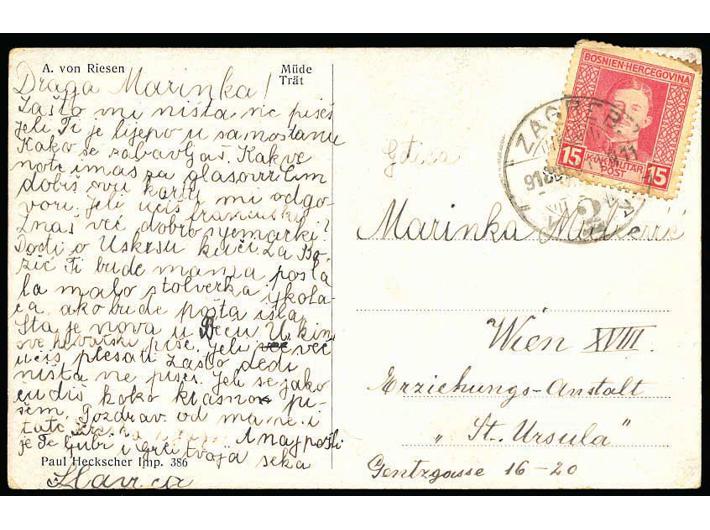 A. von Riesen
Müde
Trät
Draga Marinka!
Zašto mi ništa već pišeš
jeli Ti je lijepo u samostanu
Kako se zabavljaš. Kakve
note imaš za glasovir. Čim
dobiš ovu kartu mi odgo-
vori. Jeli učiš francuski?
Znaš već dobro njemački?
Dodji o Uskrsu kući za Bo-
žić Ti bude mama posla
la malo stolverka i kola-
ča, ako bude pošta išla.
Šta je nova u Beču
piše. Jeli već
učiš plesati zašto dedi
ništa ne pišeš. Jeli se jako
čudiš kako krasno pi-
šem. Pozdrav od mame i
tate
je Te ljubi i tvoja seka
Slavica
Paul Heckscher Imp. 386
BOSNIEN-HERCEGOVINA
15 K.u.K. MILITÄR POST 15
ZAGREB
Marinka
Wien XVIII.
Erziehungs-Anstalt
„St. Ursula"
Gentzgasse 16-20